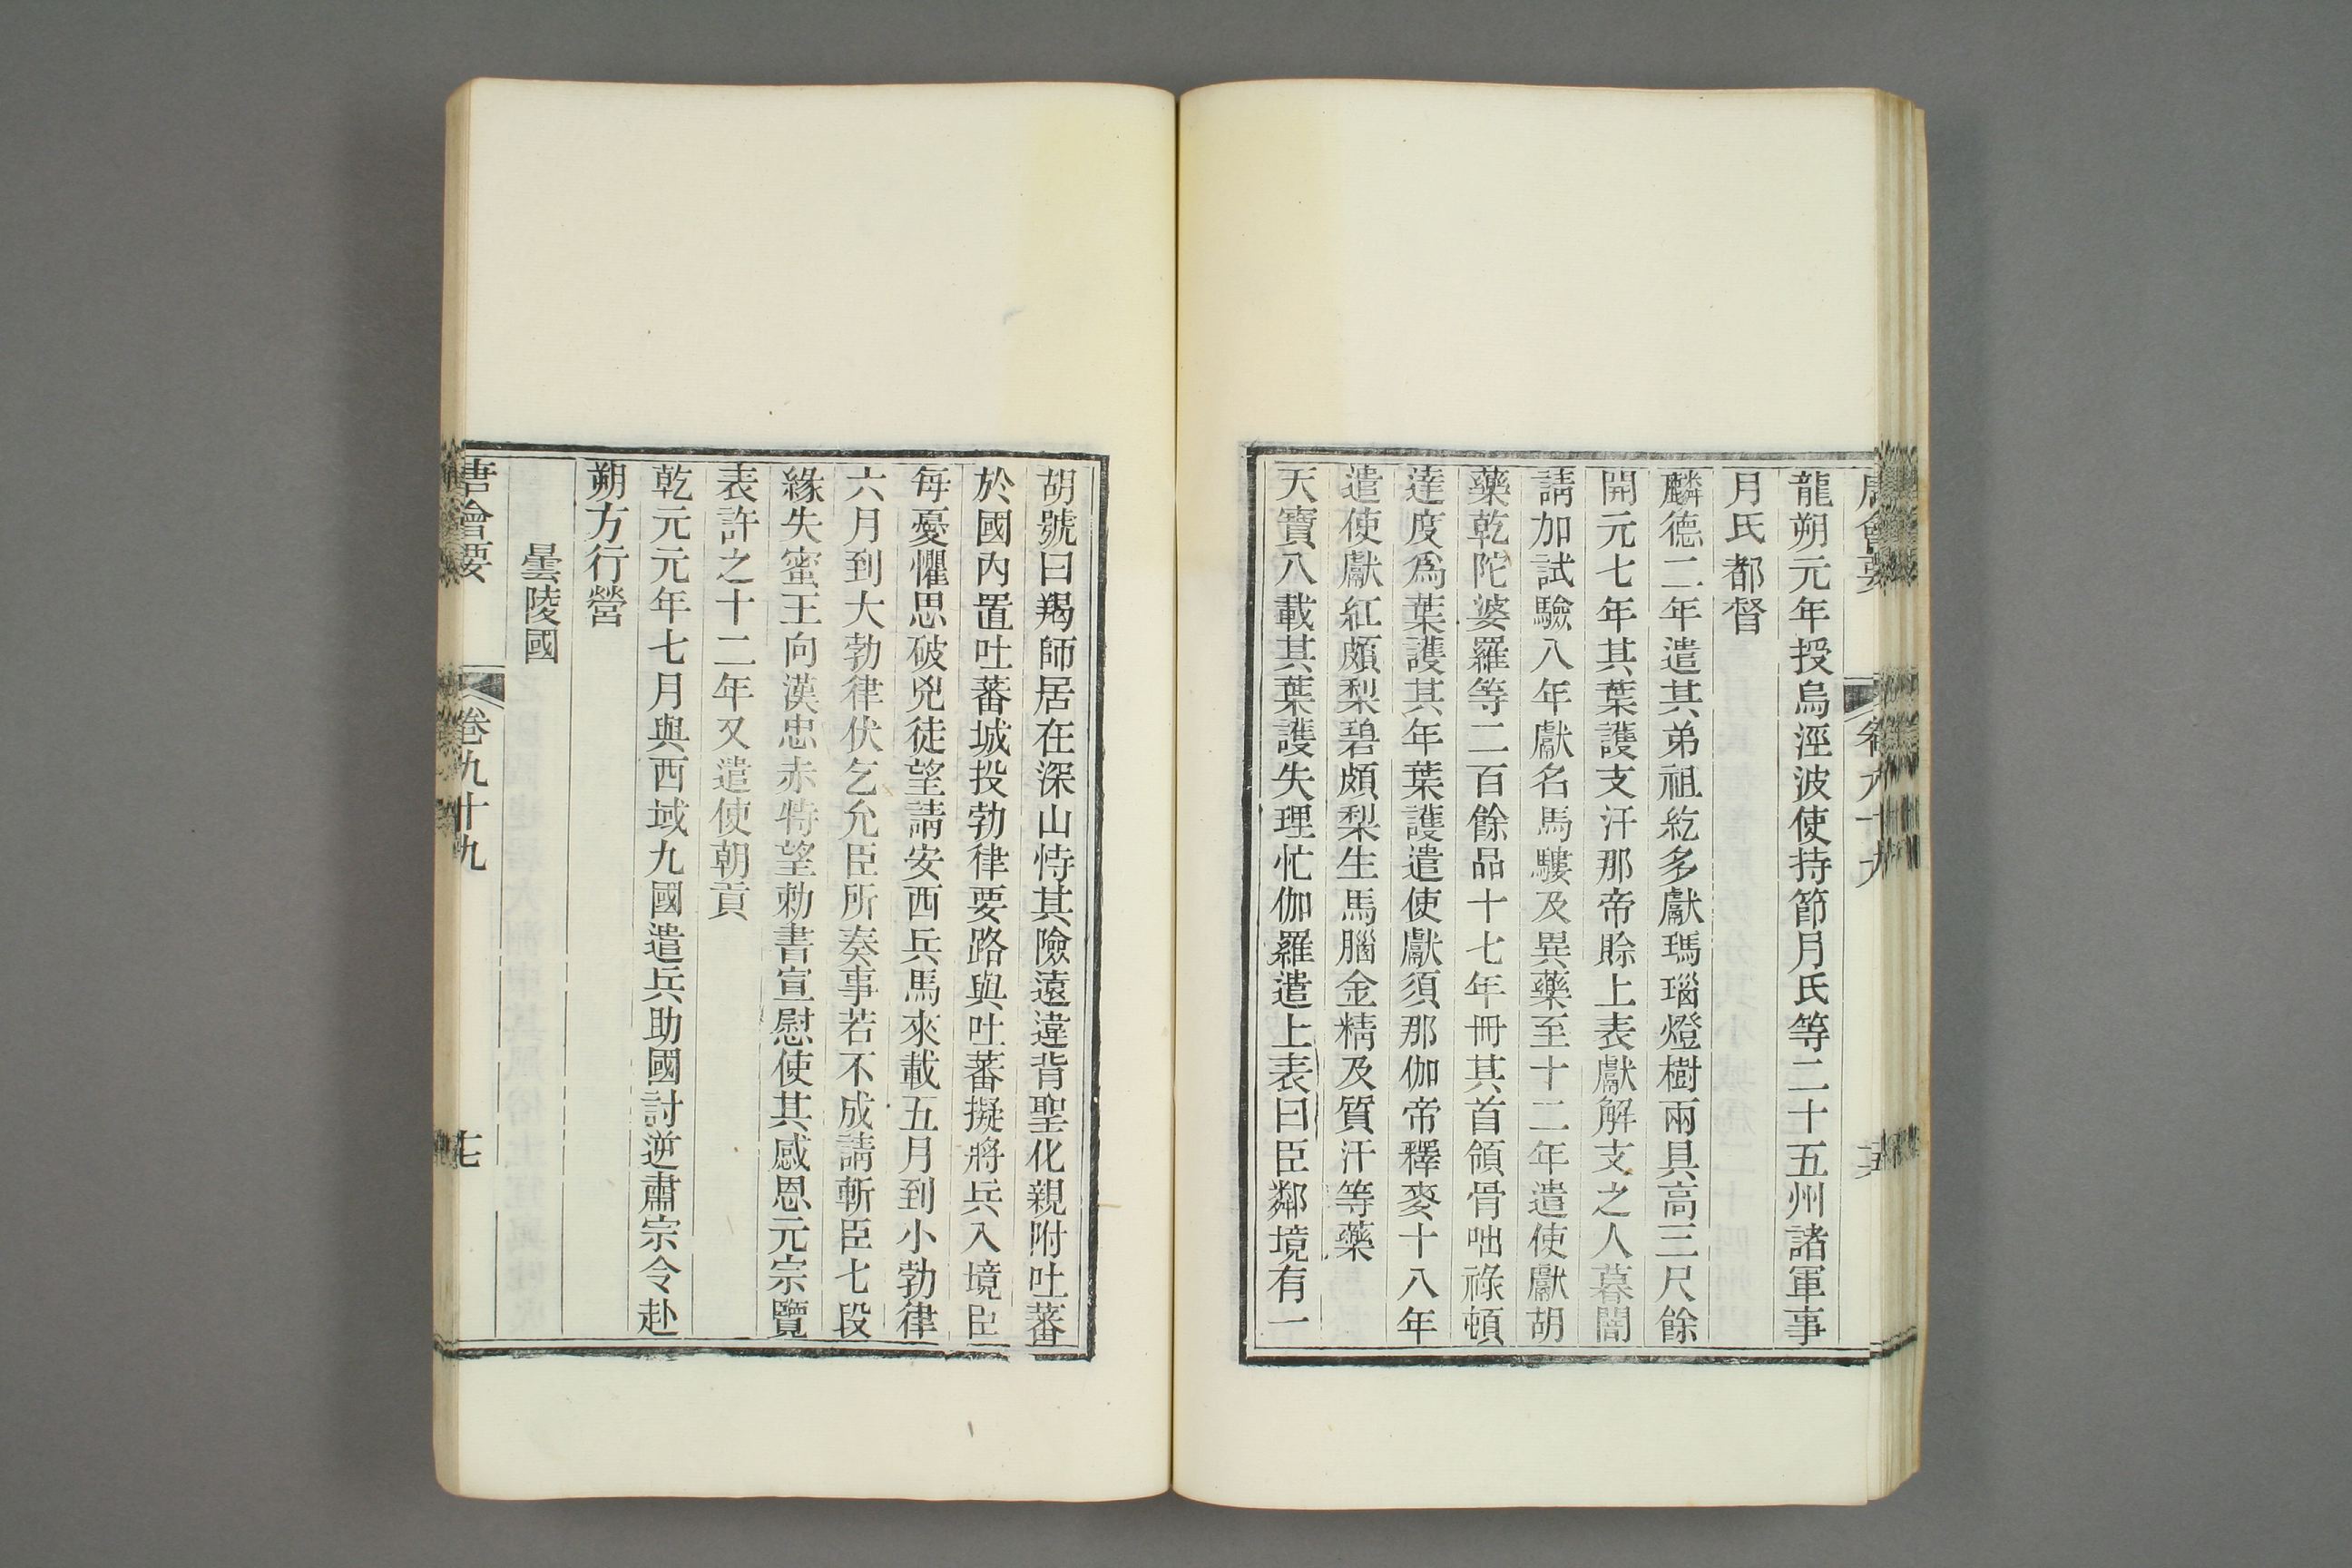 唐會要 卷九十九
龍朔元年授烏涇波使持節月氏等二十五州諸軍事
月氏都督
麟德二年遣其弟祖紇多獻瑪瑙燈樹兩具高三尺餘
開元七年其葉護支汗那帝賒上表獻解支之人暮闍
請加試驗八年獻名馬騾及異藥至十二年遣使獻胡
藥乾陀婆羅等二百餘品十七年冊其首領骨咄祿頓
達度爲葉護其年葉護遣使獻須那伽帝釋麥十八年
遣使獻紅頗梨碧頗梨生馬腦金精及質汗等藥
天寶八載其葉護失理忙伽羅遣上表曰臣鄰境有一
胡號曰羯師居在深山恃其險遠違背聖化親附吐蕃
於國內置吐蕃城投勃律要路與吐蕃擬將兵入境臣
每憂懼思破兇徒望請安西兵馬來載五月到小勃律
六月到大勃律伏乞允臣所奏事若不成請斬臣七段
緣失蜜王向漢忠赤特望勅書宣慰使其感恩元宗覽
表許之十二年又遣使朝貢
乾元元年七月與西域九國遣兵助國討逆肅宗令赴
朔方行營
曇陵國
唐會要 卷九十九 七